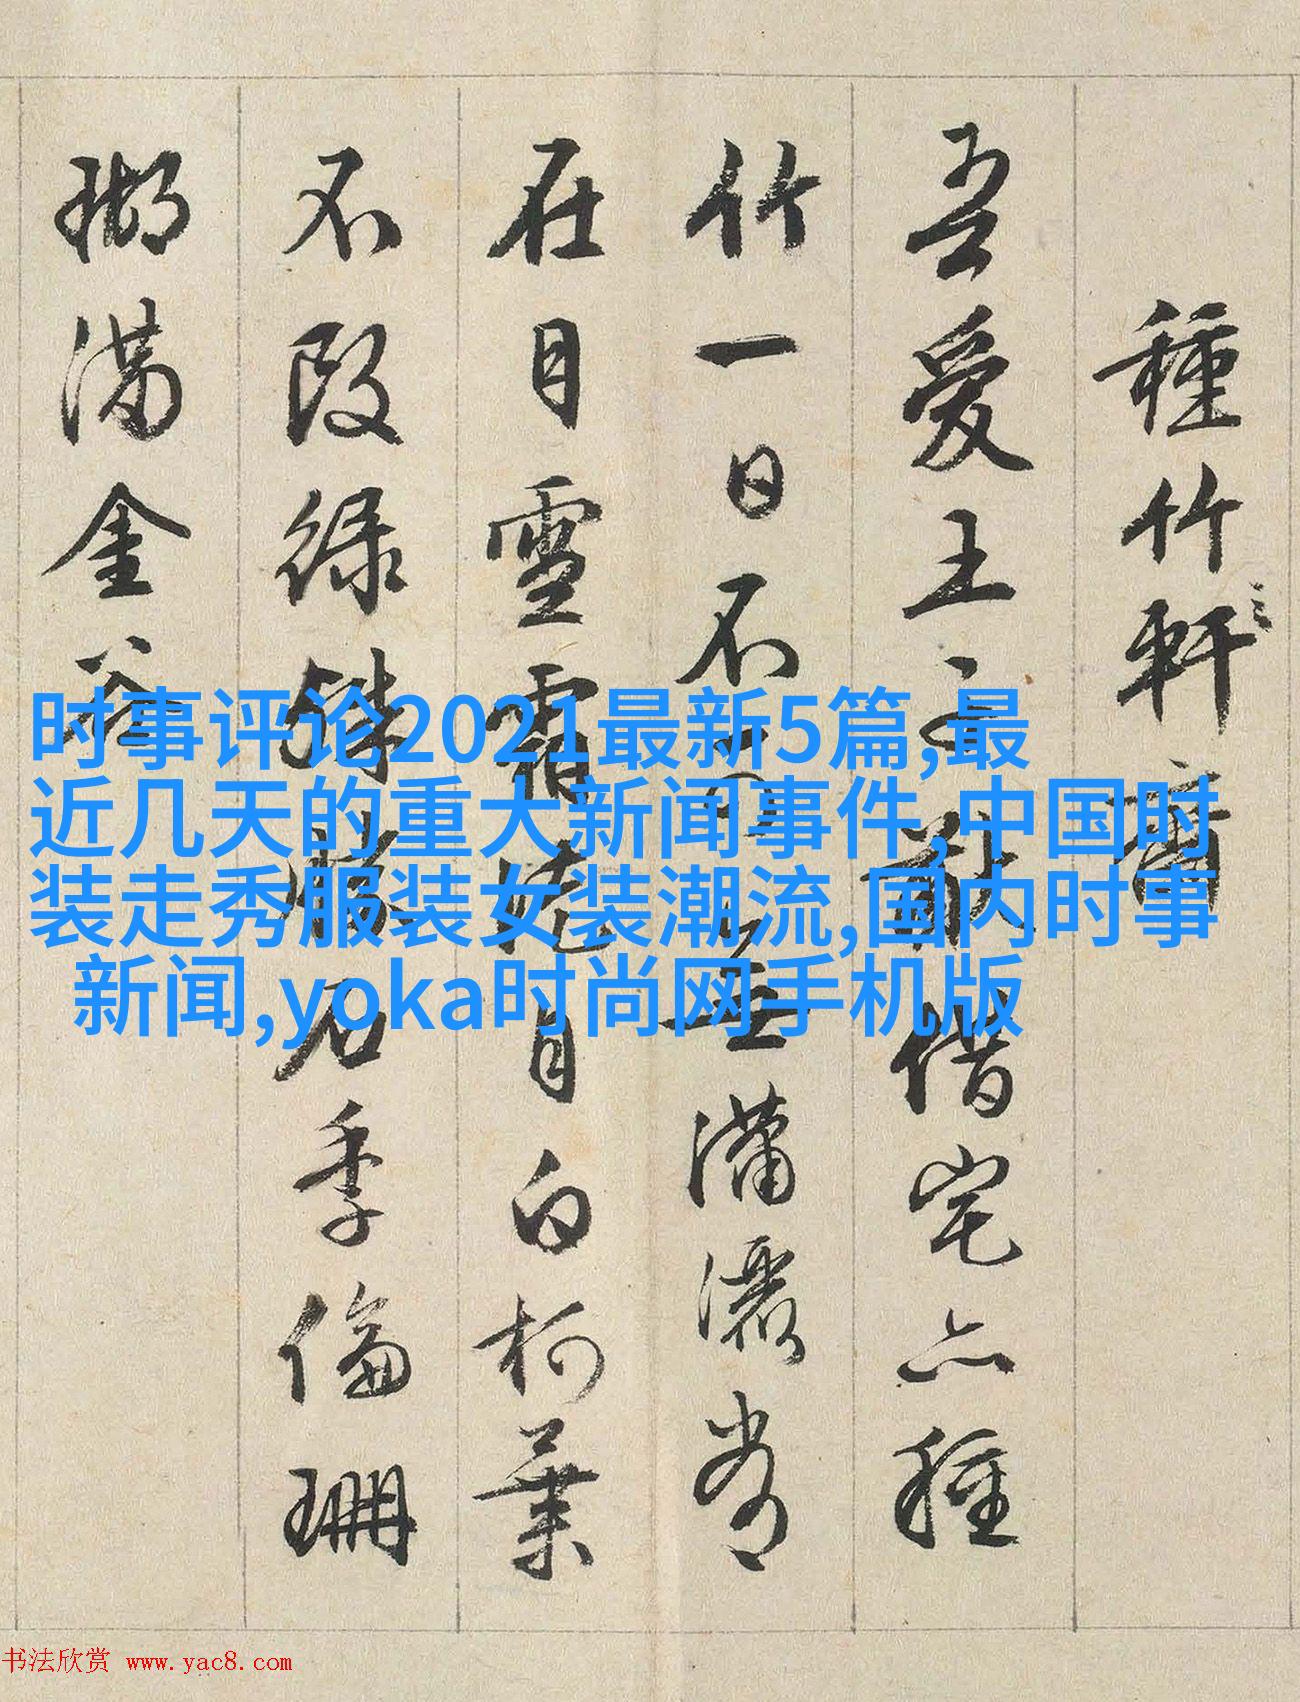 種竹軒
吾愛王子猷借宅亦種
竹一日不可無瀟灑常
在目雪霜徒自白柯葉
不改綠殊勝石季倫珊
瑚滿金谷
时事评论2021最新5篇,最
近几天的重大新闻事件,中国时
装走秀服装女装潮流,国内时事
新闻,yoka时尚网手机版
书法欣赏 www.yac8.com